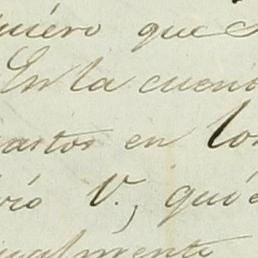 quiero que
En la cuen
gastos en los
rió V., qui
ualmente